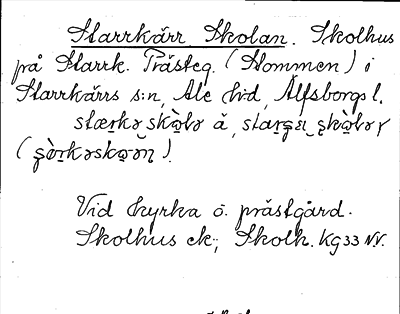 Starrkärr Skolan. Skolhus
på Starrk. Prästeg. (Stommen) i
Starrkärrs s:n, Ale hd, Älfsborgs l.
Vid kyrka o. prästgård.
Skolhus ek., Skolh. Kg 33 NV.